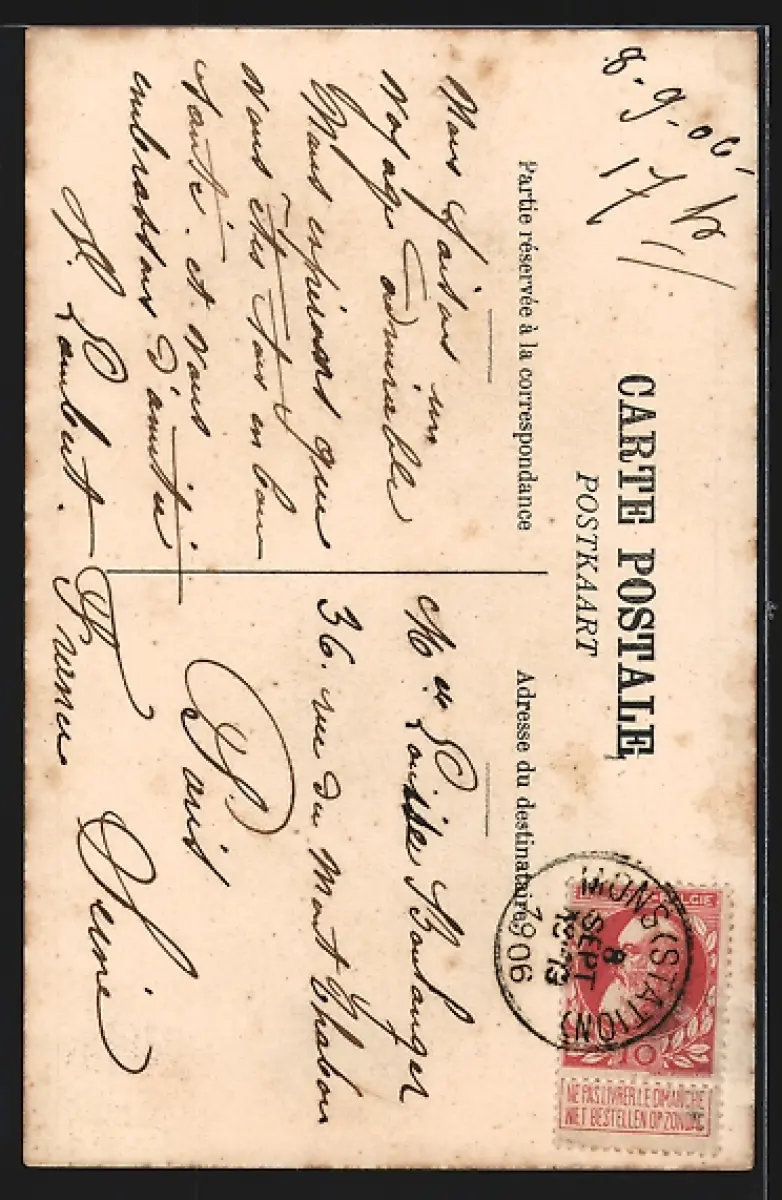 8.9.06.
17 h
CARTE POSTALE
POSTKAART
Partie réservée à la correspondance
Adresse du destinataire
Nous faisons un
voyage admirable
Nous espérons que
vous êtes tous en bonne
santé. et vous
embrassons d'amitié
Lambert.
Mlle Louise Boulanger
36. rue du Mont Thabor
Paris
France Seine
MONS (STATION)
8
SEPT
1906
10
NE PAS LIVRER LE DIMANCHE
NIET BESTELLEN OP ZONDAG